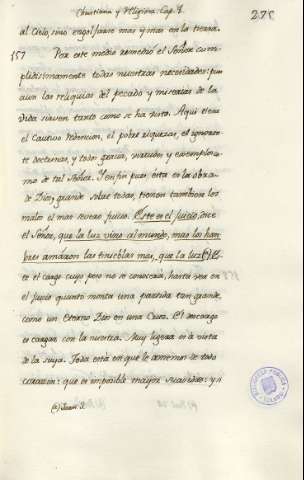 Christiana y Religiosa. Cap. 7.
275
al Cielo, sino engolfarse mas y mas en la tierra.
157 Por este medio remedio el Señor cum-
plidissimamente todas nuestras necesidades: pues
aun las reliquias del pecado y miserias de la
vida sirven tanto como se ha visto. Aqui tiene
el Cautivo redencion, el pobre riquezas, el ignoran-
te doctrinas, y todos gracia, virtudes y exemplos co-
mo de tal Señor. Y en fin pues esta es la obra
de Dios, grande sobre todas, tienen tambien los
malos el mas severo juicio. Este es el juicio, dice
el Señor, que la luz vino al mundo, mas los hom-
bres amaron las tinieblas mas, que la luz (a) Es-
te es el cargo cuyo peso no se conocerá, hasta ver en
el juicio quanto monta una partida tan grande,
como un Eterno Dios en una Cruz. El descargo
es cargar con la nuestra. Muy ligera es à vista
de la suya. Toda está en que le amemos de todo
corazon: que es imposible mayor suavidad: y si
(a) Juan 3.